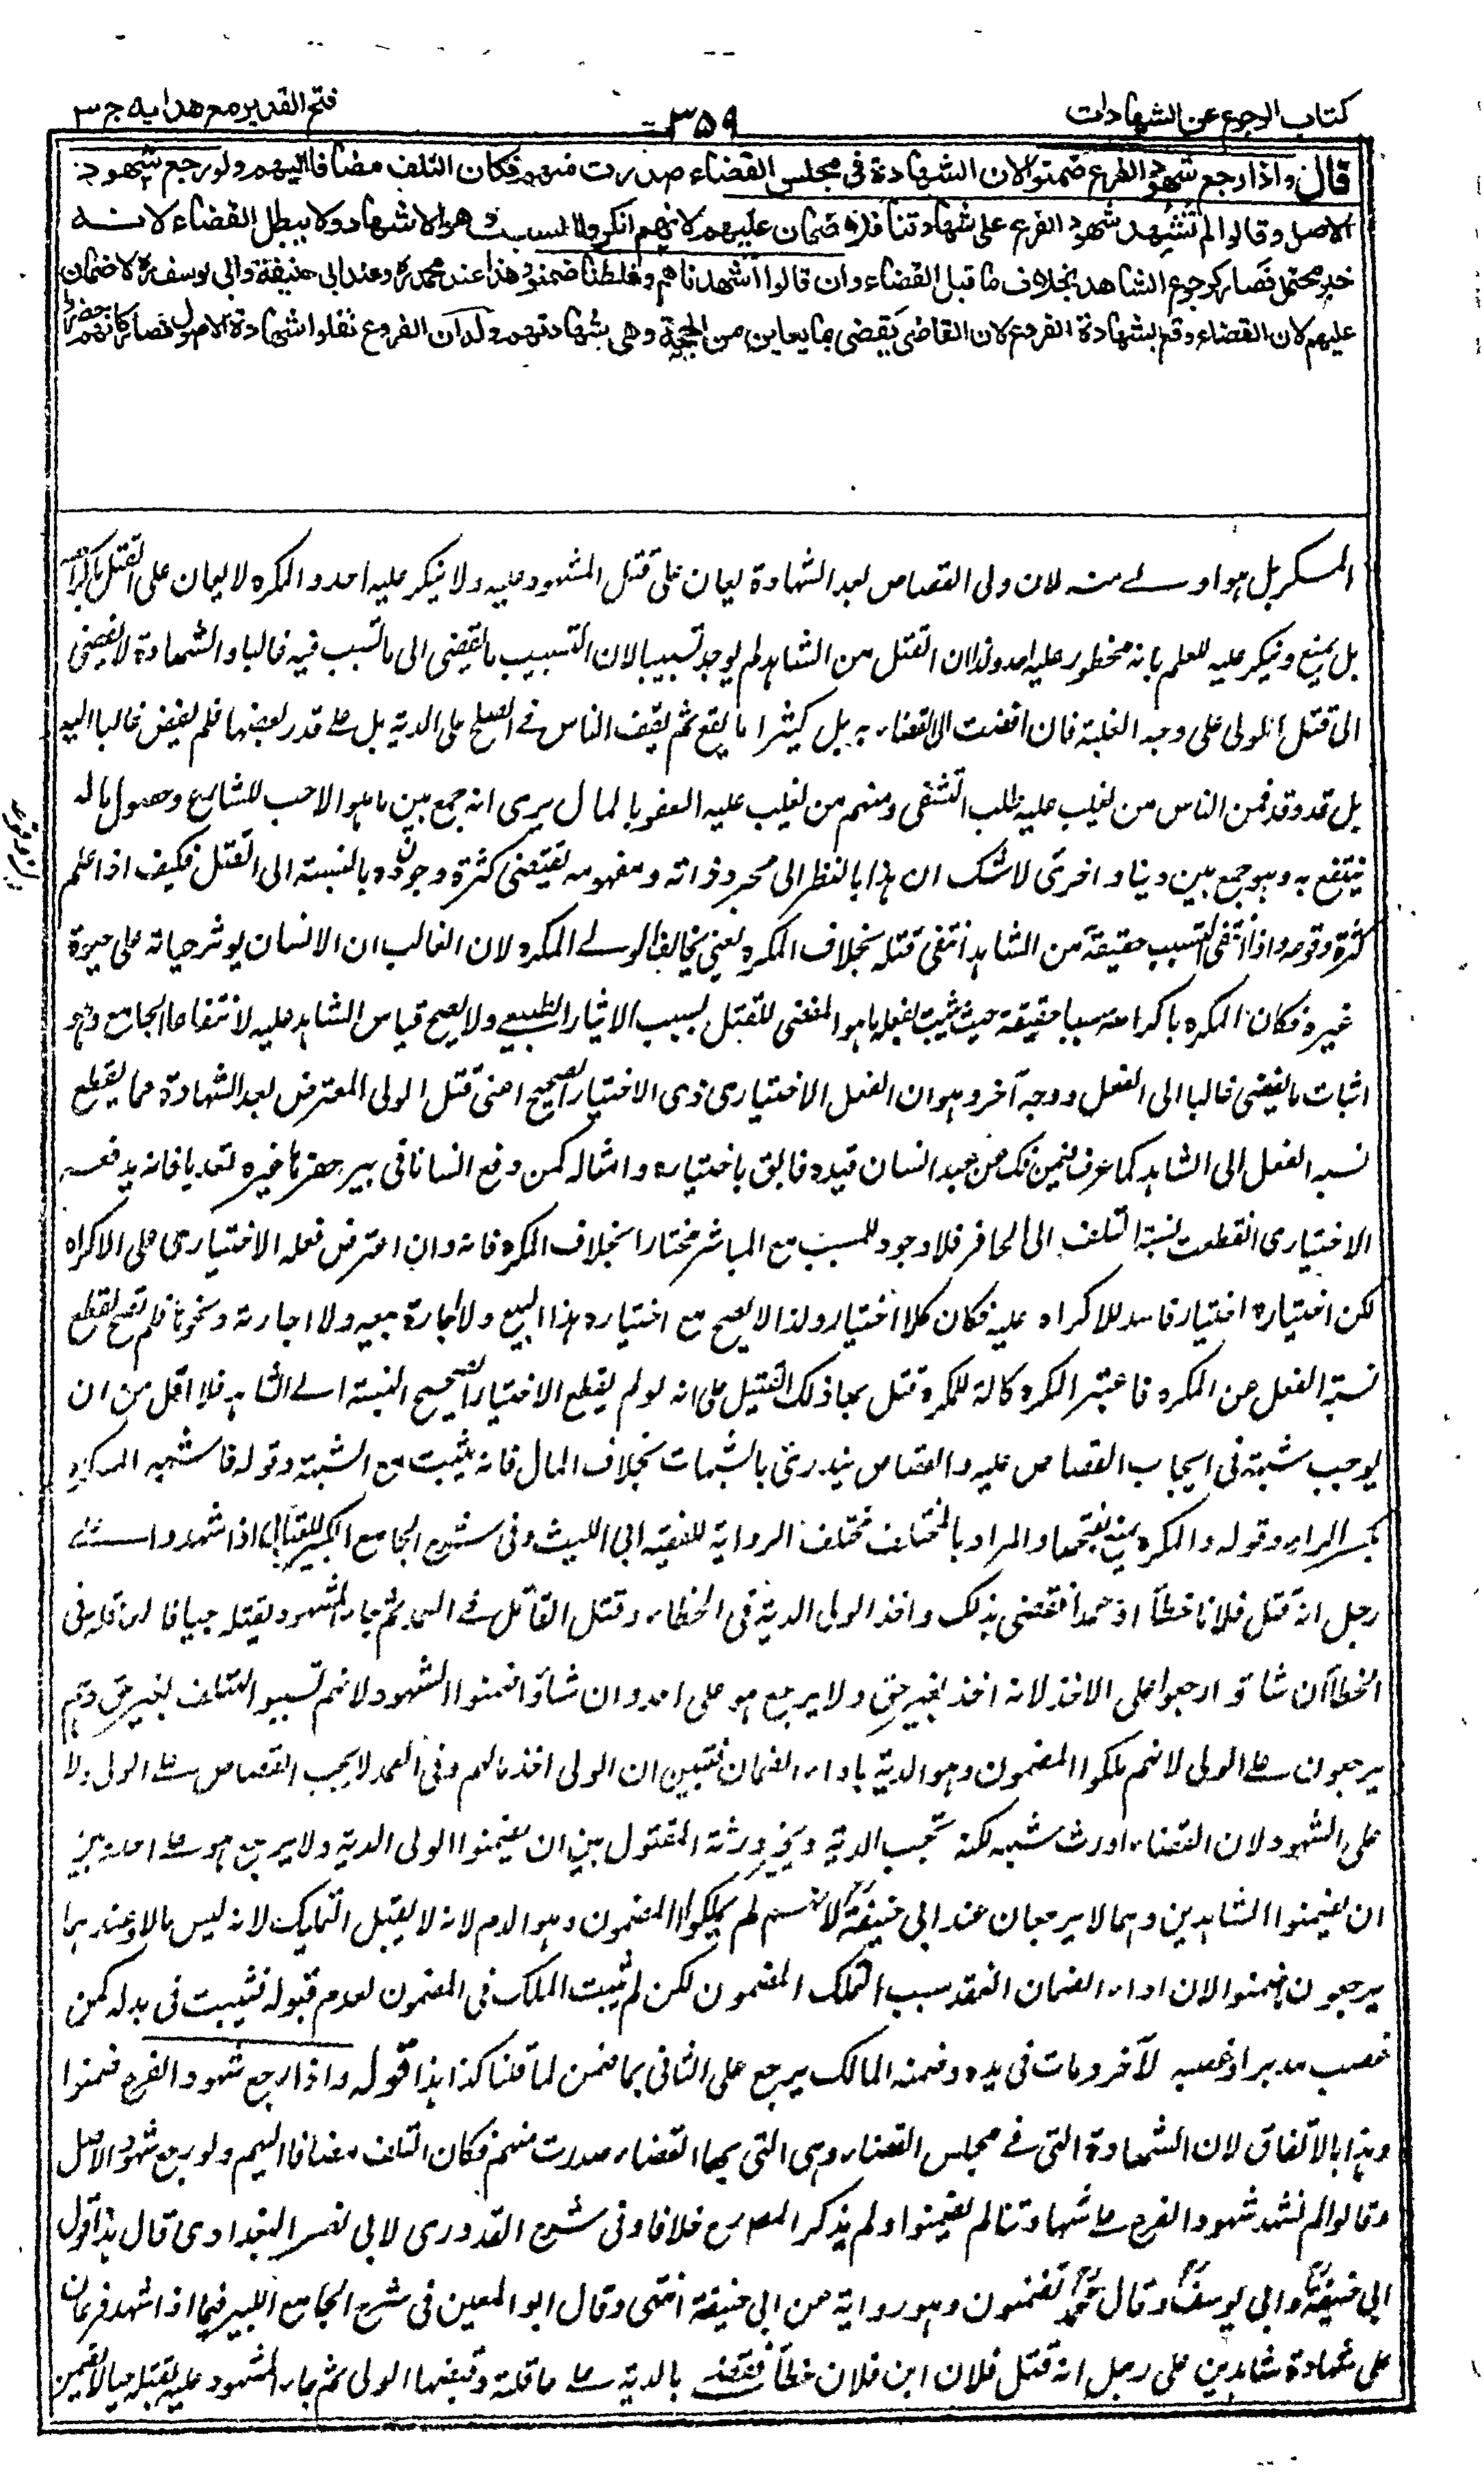 كتاب الرجوع عن الشهادات
۳۵۹
فتح القدير مع هدايه ج ۳
قال واذا رجع شهود الفرع ضمنوا لان الشهادة فى مجلس القضاء صدرت منهم فكان التلف مضافا اليهم ولو رجع شهود
الاصل وقالوا لم نشهد شهود الفرع على شهادتنا فلا ضمان عليهم لانهم انكروا السبب وهو الاشهاد ولا يبطل القضاء لانه
خبر محتمل فصار كرجوع الشاهد بخلاف ما قبل القضاء وان قالوا اشهدناهم وغلطنا ضمنوا وهذا عند محمد ره وعند ابى حنيفة وابى يوسف ره لا ضمان
عليهم لان القضاء وقع بشهادة الفروع لان القاضى يقضى بما يعاين من الحجة وهى شهادتهم وله ان الفروع نقلوا شهادة الاصول فصار كانهم حضروا
المسكر بل هو اولے منه لان ولى القصاص بعد الشهادة يعان على قتل المشهود عليه ولا ينكر عليه احد والمكره لا يعان على القتل باكراهه
بل يمنع وينكر عليه للعلم بانه محظور عليه احد ولنا ان القتل من الشاهد لم يوجد تسبيبا لان التسبيب ما يفضى الى ما تسبب فيه غالبا والشهادة لا تفضى
الى قتل الولى على وجه الغلبة فان افضت الى القضاء به بل كثيرا ما يقع ثم يقف الناس فے الصلح على الدية بل على قدر بعضها فلم يفض غالبا اليه
بل قد وقد فمن الناس من يغلب عليه طلب التشفى ومنهم من يغلب عليه العفو بالمال يرى انه جمع بين ما هو الاحب للشارع وحصول ما له
ينتفع به وهو جمع بين دينا واخرى لا شك ان هذا بالنظر الى مجرد ذاته ومفهومه يقتضى كثرة وجوده بالنسبة الى القتل فكيف اذا علم
كثرة وقوعه واذا انتفى التسبب حقيقة من الشاهد انتفى قتله بخلاف المكره يعنى يخالف الولے المكره لان الغالب ان الانسان يوثر حياته على حيوة
غيره فكان المكره باكراهه سببا حقيقة حيث يثبت بفعله ما هو المفضى للقتل بسبب الايثار الطبيعے ولا يصح قياس الشاهد عليه لانتفاء الجامع وهو
اثبات ما يفضى غالبا الى الفعل ووجه آخر وهو ان الفعل الاختيارى ذى الاختيار الصحيح اعنى قتل الولى المعترض بعد الشهادة مما يقطع
نسبة الفعل الى الشاهد كما عرف فيمن فك من عبد انسان قيده فابق باختياره وامثاله كمن دفع انسانا فى بير حفرها غيره تعديا فانه بدفعه
الاختيارى انقطعت نسبة التلف الى الحافر فلا وجود للمسبب مع المباشر مختارا بخلاف المكره فانه وان اعترض فعله الاختيارى على الاكراه
لكن اختياره اختيار فاسد للاكراه عليه فكان كلا اختيار ولذا لا يصح مع اختياره هذا البيع ولا اجازة بيعه ولا اجارته ونحوها فلم تصح لقطع
نسبة الفعل عن المكره فاعتبر المكره كالة للمكره قتل بها ذلك القتيل على انه لو لم يقطع الاختيار الصحيح النسبة الے الشاهد فلا اقل من ان
يوجب شبهة فى ايجاب القصاص عليه والقصاص يندرئ بالشبهات بخلاف المال فانه يثبت مع الشبهة وقوله فاشبه المكره
بكسر الراء وقوله والمكره يمنع بفتحها والمراد بالمختلف مختلف الرواية للفقيه ابى الليث وفى شرح الجامع الكبير للعتابى اذا شهدوا علے
رجل انه قتل فلانا خطأ او عمدا فقضى بذلك واخذ الولى الدية فى الخطاء وقتل القاتل فے العمد ثم جاء المشهود بقتله حيا فالعاقلة فى
الخطأ ان شاؤا رجعوا على الاخذ لانه اخذ بغير حق ولا يرجع هو على احد وان شاؤا ضمنوا الشهود لانهم تسببوا للتلف بغير حق وهم
يرجعون علے الولى لانهم ملكوا المضمون وهو الدية باداء الضمان فتبين ان الولى اخذ مالهم وفى العمد لا يجب القصاص علے الولى ولا
على الشهود لان القضاء اورث شبهه لكنه تجب الدية ويخير ورثة المقتول بين ان يضمنوا الولى الدية ولا يرجع هو على احد وبين
ان يضمنوا الشاهدين وهما لا يرجعان عند ابى حنيفة لانهم لم يملكوا المضمون وهو الدم لانه لا يقبل التمليك لانه ليس مالا وعندهما
يرجعون بما ضمنوا لان اداء الضمان انعقد سبب التملك المضمون لكن لم يثبت الملك فى المضمون لعدم قبوله فيثبت فى بدله كمن
غصب مدبرا وغصبه لآخر ومات فى يده وضمنه المالك يرجع على الثانى بما ضمن لما قلنا كذا هذا قوله واذا رجع شهود الفرع ضمنوا
وهذا بالاتفاق لان الشهادة التى فے مجلس القضاء وهى التى بها القضاء صدرت منهم فكان التلف مضافا اليهم ولو رجع شهود الاصل
وقالوا لم نشهد شهود الفرع على شهادتنا لم يضمنوا ولم يذكر المصرح خلافا وفى شرح القدورى لابى نصر البغدادى قال هذا قول
ابى حنيفة وابى يوسف وقال محمد تضمنون وهو رواية عن ابى حنيفة انتهى وقال ابو المعين فى شرح الجامع الكبير فيما اذا شهد فرعان
على شهادة شاهدين على رجل انه قتل فلان ابن فلان خطأ فقضے بالدية على عاقلة وقبضها الولى ثم جاء المشهود عليه بقتله حيا لا يضمن